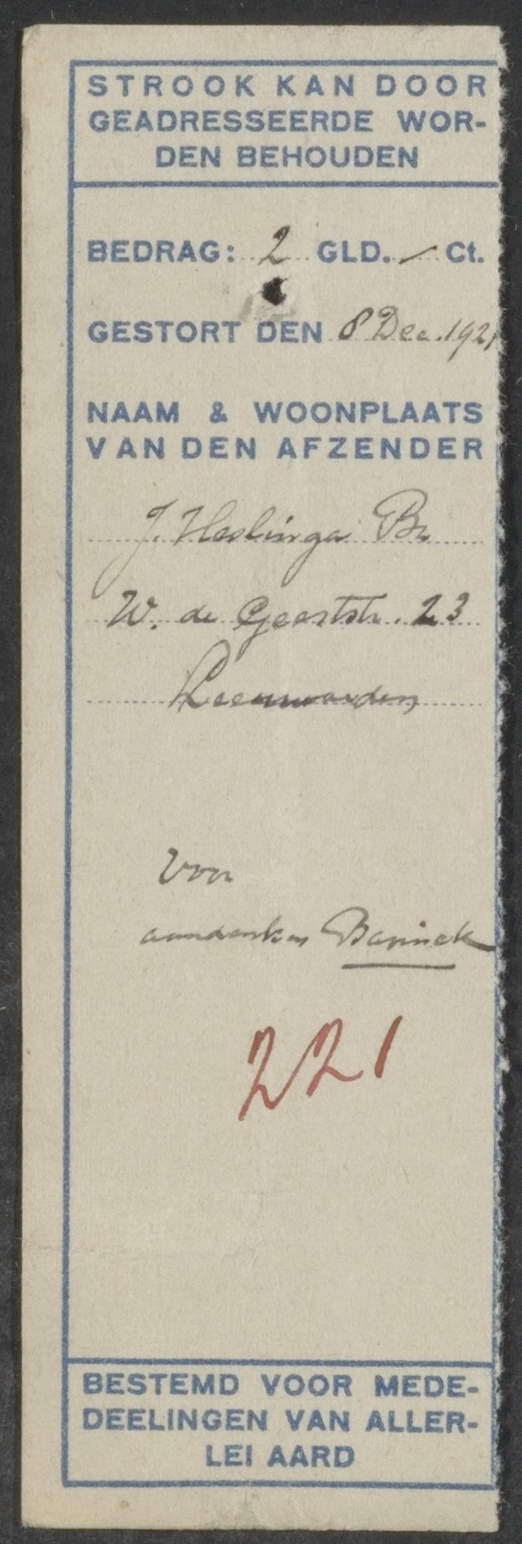 STROOK KAN DOOR
GEADRESSEERDE WOR-
DEN BEHOUDEN
BEDRAG: 2 GLD. - Ct.
GESTORT DEN 8 Dec. 1921
NAAM & WOONPLAATS
VAN DEN AFZENDER
J. Heslinga Bz
W. de Geeststr. 23
Leeuwarden
Voor
aandenken Bavinck
221
BESTEMD VOOR MEDE-
DEELINGEN VAN ALLER-
LEI AARD